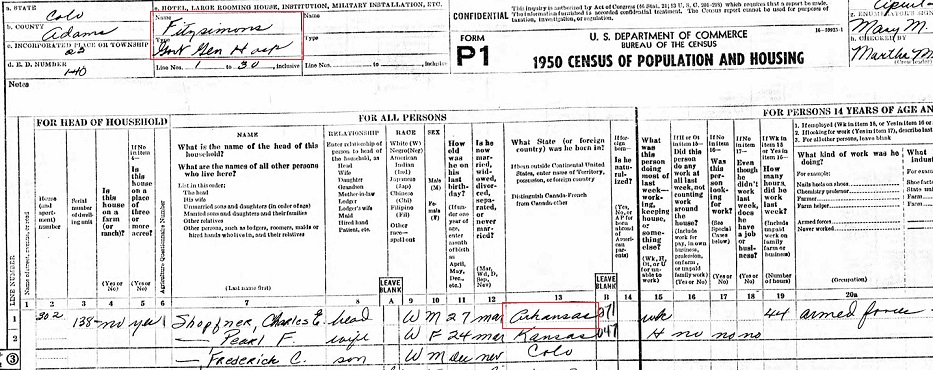 a. STATE
Colo
b. COUNTY
Adams
c. INCORPORATED PLACE OR TOWNSHIP
23
d. E. D. NUMBER
1-40
e. HOTEL, LARGE ROOMING HOUSE, INSTITUTION, MILITARY INSTALLATION, ETC.
Name
Fitzsimons
Type
Gen Hosp
Line Nos. 1 to 30, inclusive
Name
Type
Line Nos. to , inclusive
CONFIDENTIAL
FORM
P1
16—59925-1
U. S. DEPARTMENT OF COMMERCE
BUREAU OF THE CENSUS
1950 CENSUS OF POPULATION AND HOUSING
April
Mary M.
h. CHECKED BY
Martha M.
Notes
FOR HEAD OF HOUSEHOLD
FOR ALL PERSONS
FOR PERSONS 14 YEARS OF AGE AN
LINE NUMBER
Serial number of dwelling unit
Is this house on a farm (or ranch)?
(Yes or No)
If No in item 4—
Is this house on a place of three or more acres?
(Yes or No)
Agriculture Questionnaire Number
NAME
What is the name of the head of this household?
What are the names of all other persons who live here?
List in this order:
The head
His wife
Unmarried sons and daughters (in order of age)
Married sons and daughters and their families
Other relatives
Other persons, such as lodgers, roomers, maids or hired hands who live in, and their relatives
(Last name first)
RELATIONSHIP
Enter relationship of person to head of the household, as
Head
Wife
Daughter
Grandson
Mother-in-law
Lodger
Lodger's wife
Maid
Hired hand
Patient, etc.
LEAVE BLANK
RACE
White (W)
Negro (Neg)
American Indian (Ind)
Japanese (Jap)
Chinese (Chi)
Filipino (Fil)
Other race—spell out
SEX
Male (M)
Female (F)
How old was he on his last birthday?
(If under one year of age, enter month of birth as April, May, Dec., etc.)
Is he now married, widowed, divorced, separated, or never married?
(Mar, Wd, D, Sep, Nev)
What State (or foreign country) was he born in?
If born outside Continental United States, enter name of Territory, possession, or foreign country
Distinguish Canada-French from Canada-other
LEAVE BLANK
If foreign born—
Is he naturalized?
(Yes, No, or AP for born abroad of American parents)
What was this person doing most of last week—working, keeping house, or something else?
(Wk, H, Ot, or U for unable to work)
If H or Ot in item 15—
Did this person do any work at all last week, not counting work around the house?
(Yes or No)
If No in item 16—
Was this person looking for work?
(Yes or No)
If No in item 17—
Even though he didn't work last week, does he have a job or business?
(Yes or No)
If Wk in item 15 or Yes in item 16—
How many hours did he work last week?
(Number of hours)
What kind of work was he doing?
For example:
Nails heels on shoes
Chemistry professor
Farmer
Farm helper
Armed forces
Never worked
(Occupation)
1 2 3 4 5 6 7 8 A 9 10 11 12 13 B 14 15 16 17 18 19 20a
1 302 138 no yes Shopfner, Charles E. head W M 27 mar Arkansas 071 wk 44 armed force
2 — Pearl F. wife W F 24 mar Kansas 047 H no no no
3 — Frederick C. son W M dec nev Colo